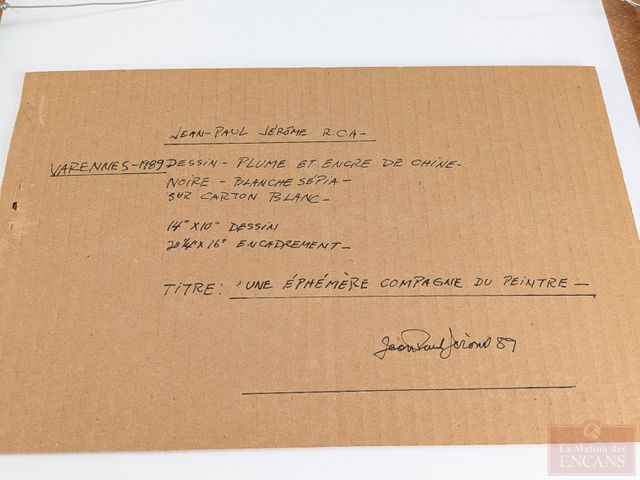 JEAN-PAUL JÉRÔME R.C.A-
VARENNES-1989 DESSIN - PLUME ET ENCRE DE CHINE-
NOIRE - BLANCHE SÉPIA -
SUR CARTON BLANC-
14" X 10" DESSIN
20¼" X 16" ENCADREMENT-
TITRE: UNE ÉPHÉMÈRE COMPAGNE DU PEINTRE -
Jean Paul Jérôme 89
La Maison des
ENCANS